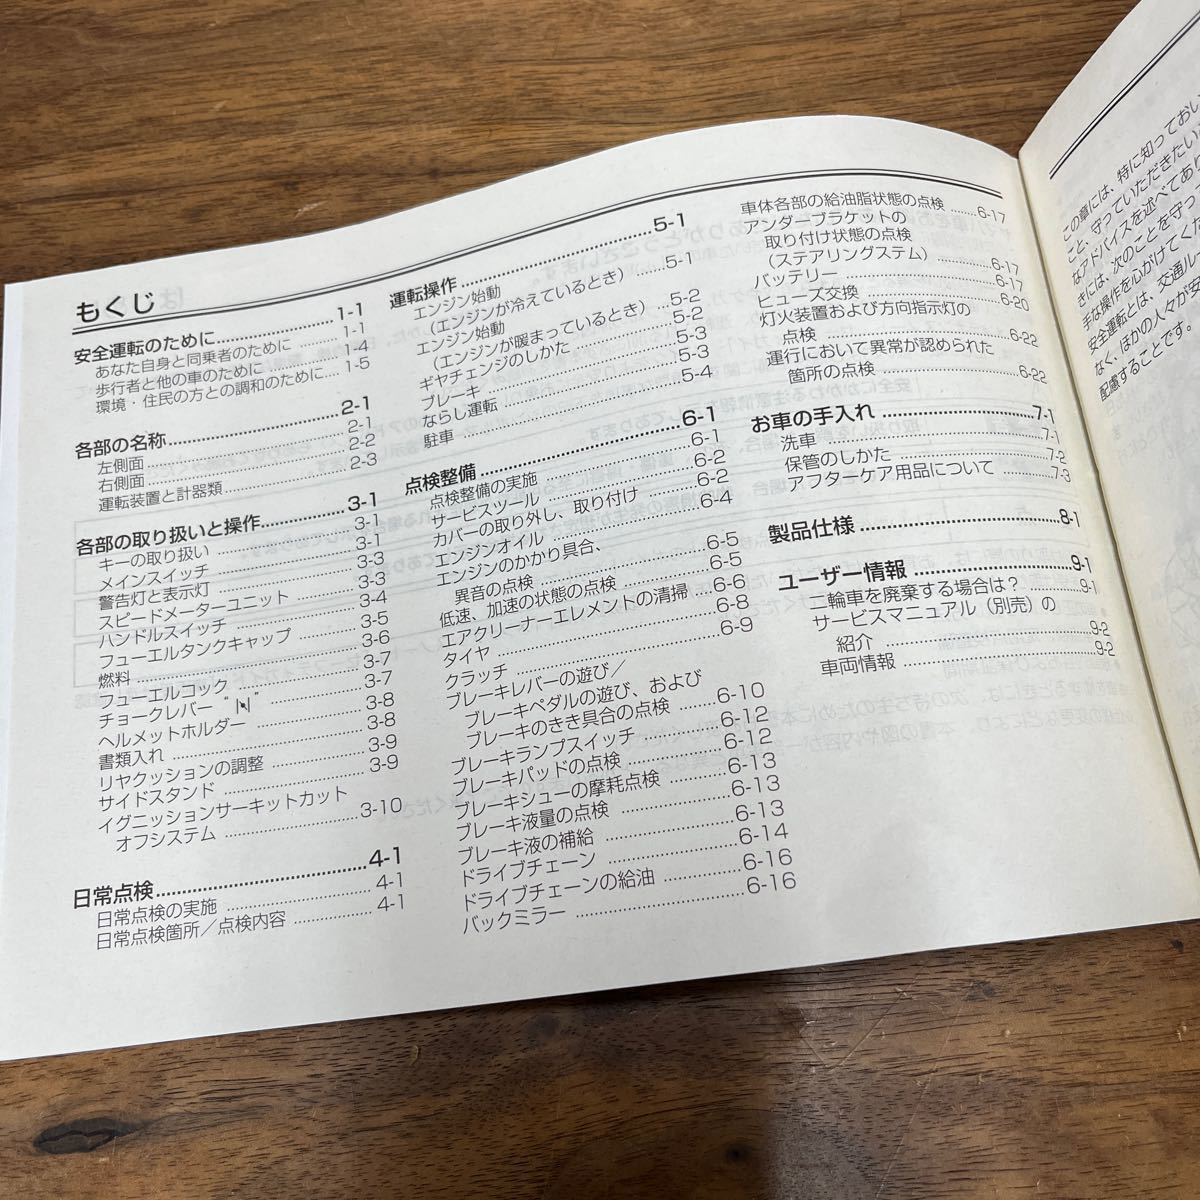 もくじ
安全運転のために 1-1
あなた自身と同乗者のために 1-1
歩行者と他の車のために 1-4
環境・住民の方との調和のために 1-5
各部の名称 2-1
左側面 2-1
右側面 2-2
運転装置と計器類 2-3
各部の取り扱いと操作 3-1
キーの取り扱い 3-1
メインスイッチ 3-1
警告灯と表示灯 3-3
スピードメーターユニット 3-3
ハンドルスイッチ 3-4
フューエルタンクキャップ 3-5
燃料 3-6
フューエルコック 3-7
チョークレバー 3-7
ヘルメットホルダー 3-8
書類入れ 3-8
リヤクッションの調整 3-9
サイドスタンド 3-9
イグニッションサーキットカット
オフシステム 3-10
日常点検 4-1
日常点検の実施 4-1
日常点検箇所／点検内容 4-1
運転操作 5-1
エンジン始動
(エンジンが冷えているとき) 5-1
エンジン始動
(エンジンが暖まっているとき) 5-2
ギヤチェンジのしかた 5-2
ブレーキ 5-3
ならし運転 5-3
駐車 5-4
点検整備 6-1
点検整備の実施 6-1
サービスツール 6-2
カバーの取り外し、取り付け 6-2
エンジンオイル 6-4
エンジンのかかり具合、
異音の点検 6-5
低速、加速の状態の点検 6-5
エアクリーナーエレメントの清掃 6-6
タイヤ 6-8
クラッチ 6-9
ブレーキレバーの遊び／
ブレーキペダルの遊び、および
ブレーキのきき具合の点検 6-10
ブレーキランプスイッチ 6-12
ブレーキパッドの点検 6-12
ブレーキシューの摩耗点検 6-13
ブレーキ液量の点検 6-13
ブレーキ液の補給 6-13
ドライブチェーン 6-14
ドライブチェーンの給油 6-16
バックミラー 6-16
車体各部の給油脂状態の点検 6-17
アンダーブラケットの
取り付け状態の点検
(ステアリングステム) 6-17
バッテリー 6-17
ヒューズ交換 6-20
灯火装置および方向指示灯の
点検 6-22
運行において異常が認められた
箇所の点検 6-22
お車の手入れ 7-1
洗車 7-1
保管のしかた 7-2
アフターケア用品について 7-3
製品仕様 8-1
ユーザー情報 9-1
二輪車を廃棄する場合は？ 9-1
サービスマニュアル(別売)の
紹介 9-2
車両情報 9-2
この章には、特に知っておい
こと、守っていただきたい
なアドバイスを述べてあり
きには、次のことを守っ
手な操作を心がけてくだ
安全運転とは、交通ルー
なく、ほかの人々が安
配慮することです。